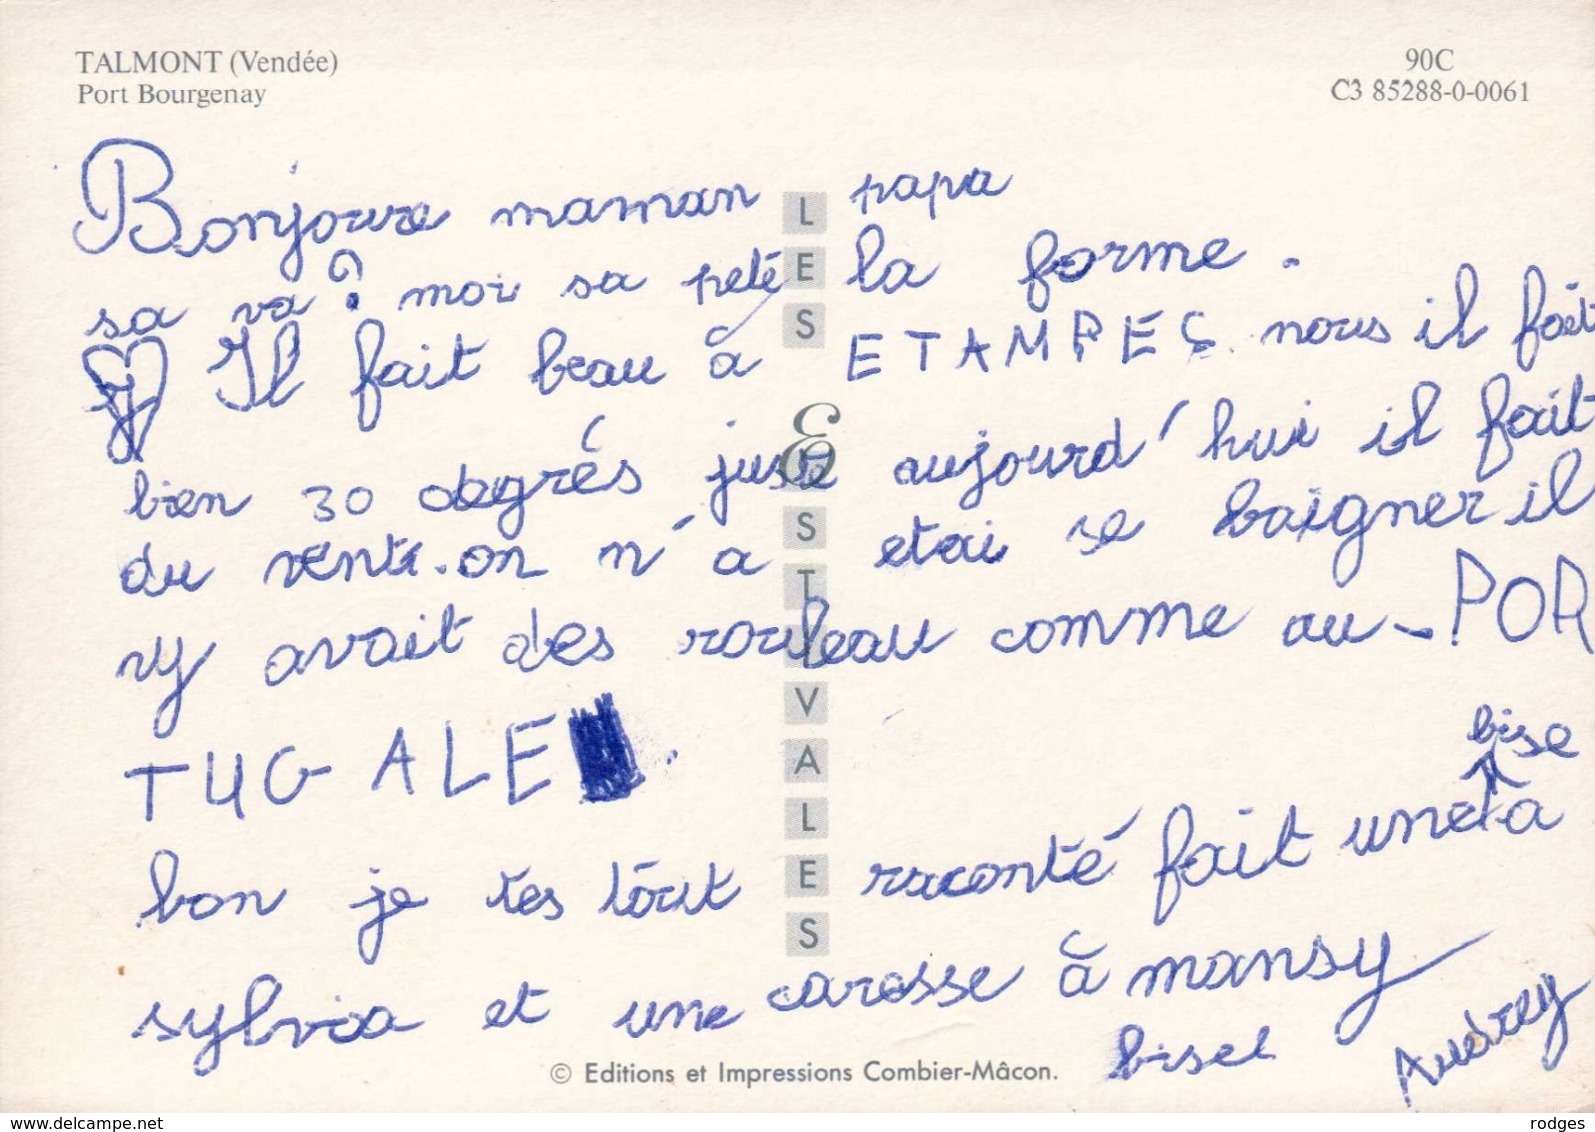 TALMONT (Vendée)
Port Bourgenay
90C
C3 85288-0-0061
Bonjoure maman papa
sa va ? moi sa peté la forme.
Il fait beau à ETAMPES nous il fait
bien 30 degrés juste aujourd'hui il fait
du vent. on n'a etai se baigner il
ny avait des rouleau comme au - POR
TUGALE.
bise
bon je tes tout raconté fait une à
sylvia et une caresse à mansy
bises Audrey
LES ESTIVALES
© Editions et Impressions Combier-Mâcon.
www.delcampe.net
rodges